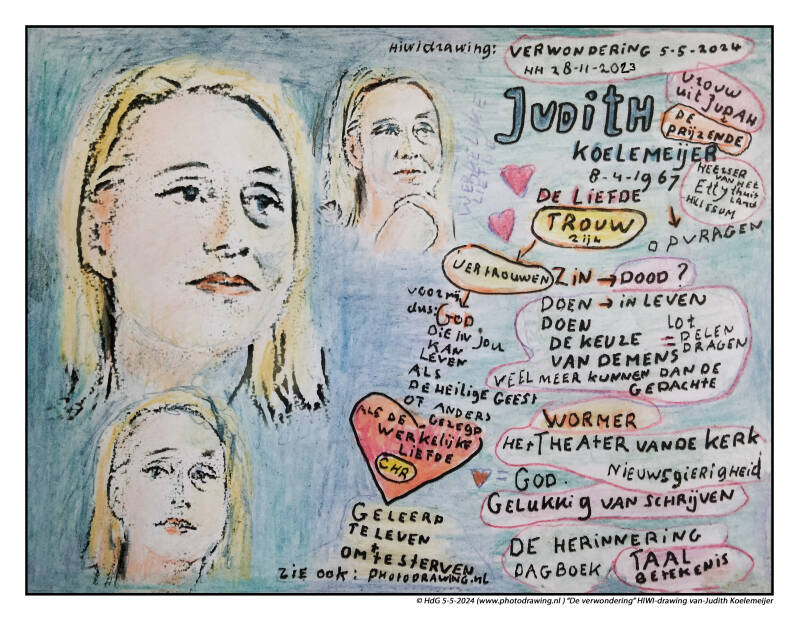 Hiwidrawing: VERWONDERING 5-5-2024
HH 28-11-2023
VROUW
uit JUDAH
DE
PRIJZENDE
JUDITH
KOELEMEIJER
8-4-1967
HEELSER
VAN HET
Etty huis
LAND
HILLESUM
WERKELIJKE
LIEFDE
DE LIEFDE
TROUW
zijn
OPVRAGEN
VERTROUWEN
ZIN → DOOD?
voor mij
dus: GOD
DIE IN JOU
KAN
LEVEN
ALS
DE HEILIGE GEEST
OF ANDERS
GEZEGD
ALS DE
WERKELIJKE
LIEFDE
CHR
DOEN → IN LEVEN
DOEN
DE KEUZE
VAN DE MENS
LOT
= DELEN
DRAGEN
VEEL MEER KUNNEN DAN DE
GEDACHTE
WORMER
HET THEATER VAN DE KERK
= GOD. NIEUWSGIERIGHEID
GELUKKIG VAN SCHRIJVEN
GELEERD
TE LEVEN
OM TE STERVEN
DE HERINNERING
DAGBOEK
TAAL
BETEKENIS
ZIE OOK: PHOTODRAWING.nl
© HdG 5-5-2024 (www.photodrawing.nl ) "De verwondering" HIWI-drawing van-Judith Koelemeijer